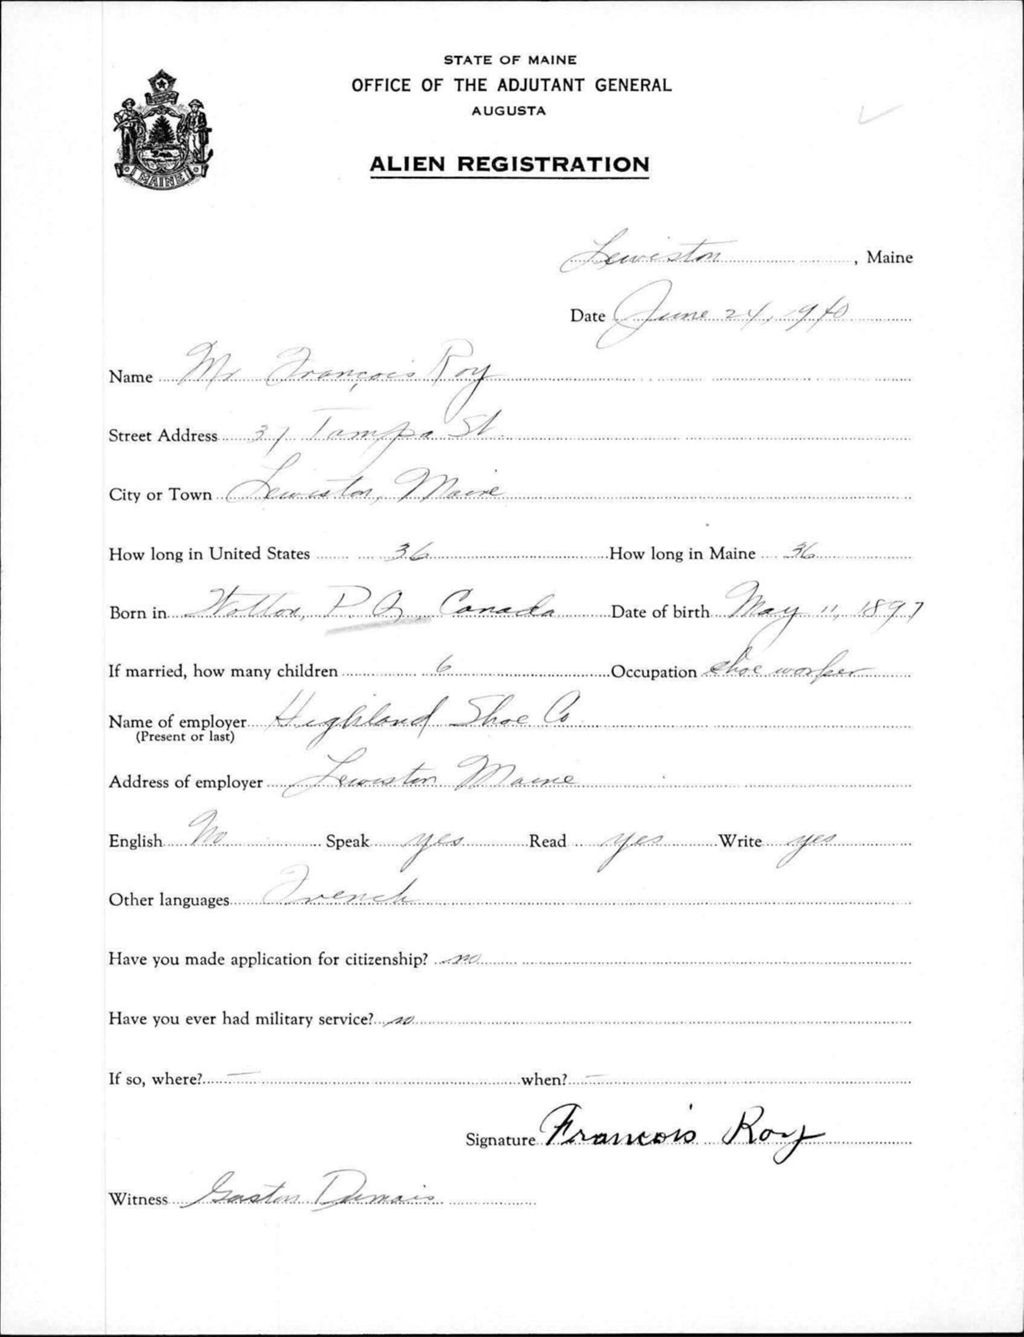 STATE OF MAINE
OFFICE OF THE ADJUTANT GENERAL
AUGUSTA
ALIEN REGISTRATION
MAINE
Lewiston, Maine
Date June 24, 1940
Name Mr François Roy
Street Address 37 Tampa St.
City or Town Lewiston, Maine
How long in United States 36 How long in Maine 36
Born in Wotton, P. Q., Canada Date of birth May 11, 1897
If married, how many children 6 Occupation shoe worker
Name of employer Highland Shoe Co
(Present or last)
Address of employer Lewiston Maine
English No Speak yes Read yes Write yes
Other languages French
Have you made application for citizenship? no
Have you ever had military service? no
If so, where? — when? —
Signature Francois Roy
Witness Gaston Dumais